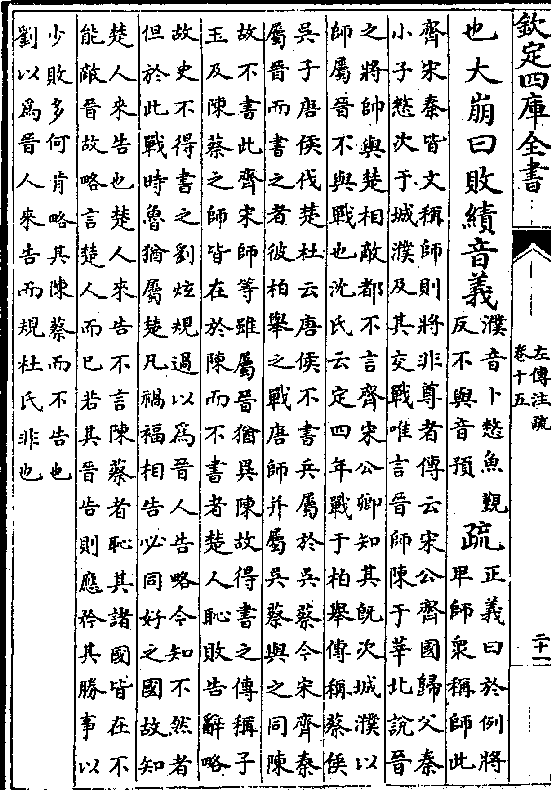 欽定四庫全書
左傳注疏
卷十五
二十一
也大崩曰敗績音義
濮音卜憖魚覲
反不與音預
疏
正義曰於例將
卑師衆稱師此
齊宋秦皆文稱師則將非尊者傳云宋公齊國歸父秦
小子憖次于城濮及其交戰唯言晉師陳于莘北說晉
之將帥與楚相敵都不言齊宋公卿知其旣次城濮以
師屬晉不與戰也沈氏云定四年戰于柏舉傳稱蔡侯
吳子唐侯伐楚杜云唐侯不書兵屬於吳蔡今宋齊秦
屬晉而書之者彼柏舉之戰唐師并屬吳蔡與之同陳
故不書此齊宋師等雖屬晉猶異陳故得書之傳稱子
玉及陳蔡之師皆在於陳而不書者楚人恥敗告辭略
故史不得書之劉炫規過以爲晉人告略今知不然者
但於此戰時魯猶屬楚凡禍福相告必同好之國故知
楚人來告也楚人來告不言陳蔡者恥其諸國皆在不
能敵晉故略言楚人而已若其晉告則應矜其勝事以
少敗多何肯略其陳蔡而不告也
劉以爲晉人來告而規杜氏非也